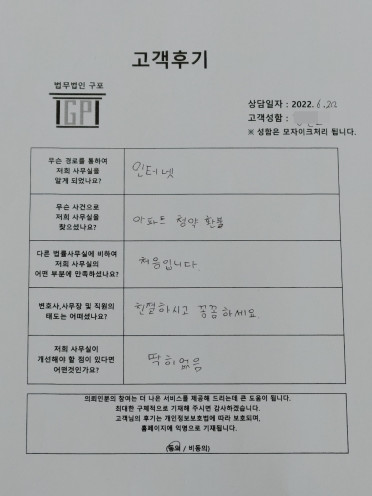 고객후기
법무법인 구포
GP
상담일자 : 2022. 6. 20
고객성함 :
※ 성함은 모자이크처리 됩니다.
무슨 경로를 통하여
저희 사무실을
알게 되었나요?
인터넷
무슨 사건으로
저희 사무실을
찾으셨나요?
아파트 청약 환불
다른 법률사무실에 비하여
저희 사무실의
어떤 부분에 만족하셨나요?
처음입니다.
변호사,사무장 및 직원의
태도는 어떠셨나요?
친절하시고 꼼꼼하세요
저희 사무실이
개선해야 할 점이 있다면
어떤것인가요?
딱히없음
의뢰인분의 참여는 더 나은 서비스를 제공해 드리는데 큰 도움이 됩니다.
최대한 구체적으로 기재해 주시면 감사하겠습니다.
고객님의 후기는 개인정보보호법에 따라 보호되며,
홈페이지에 익명으로 기재됩니다.
(동의 / 비동의)